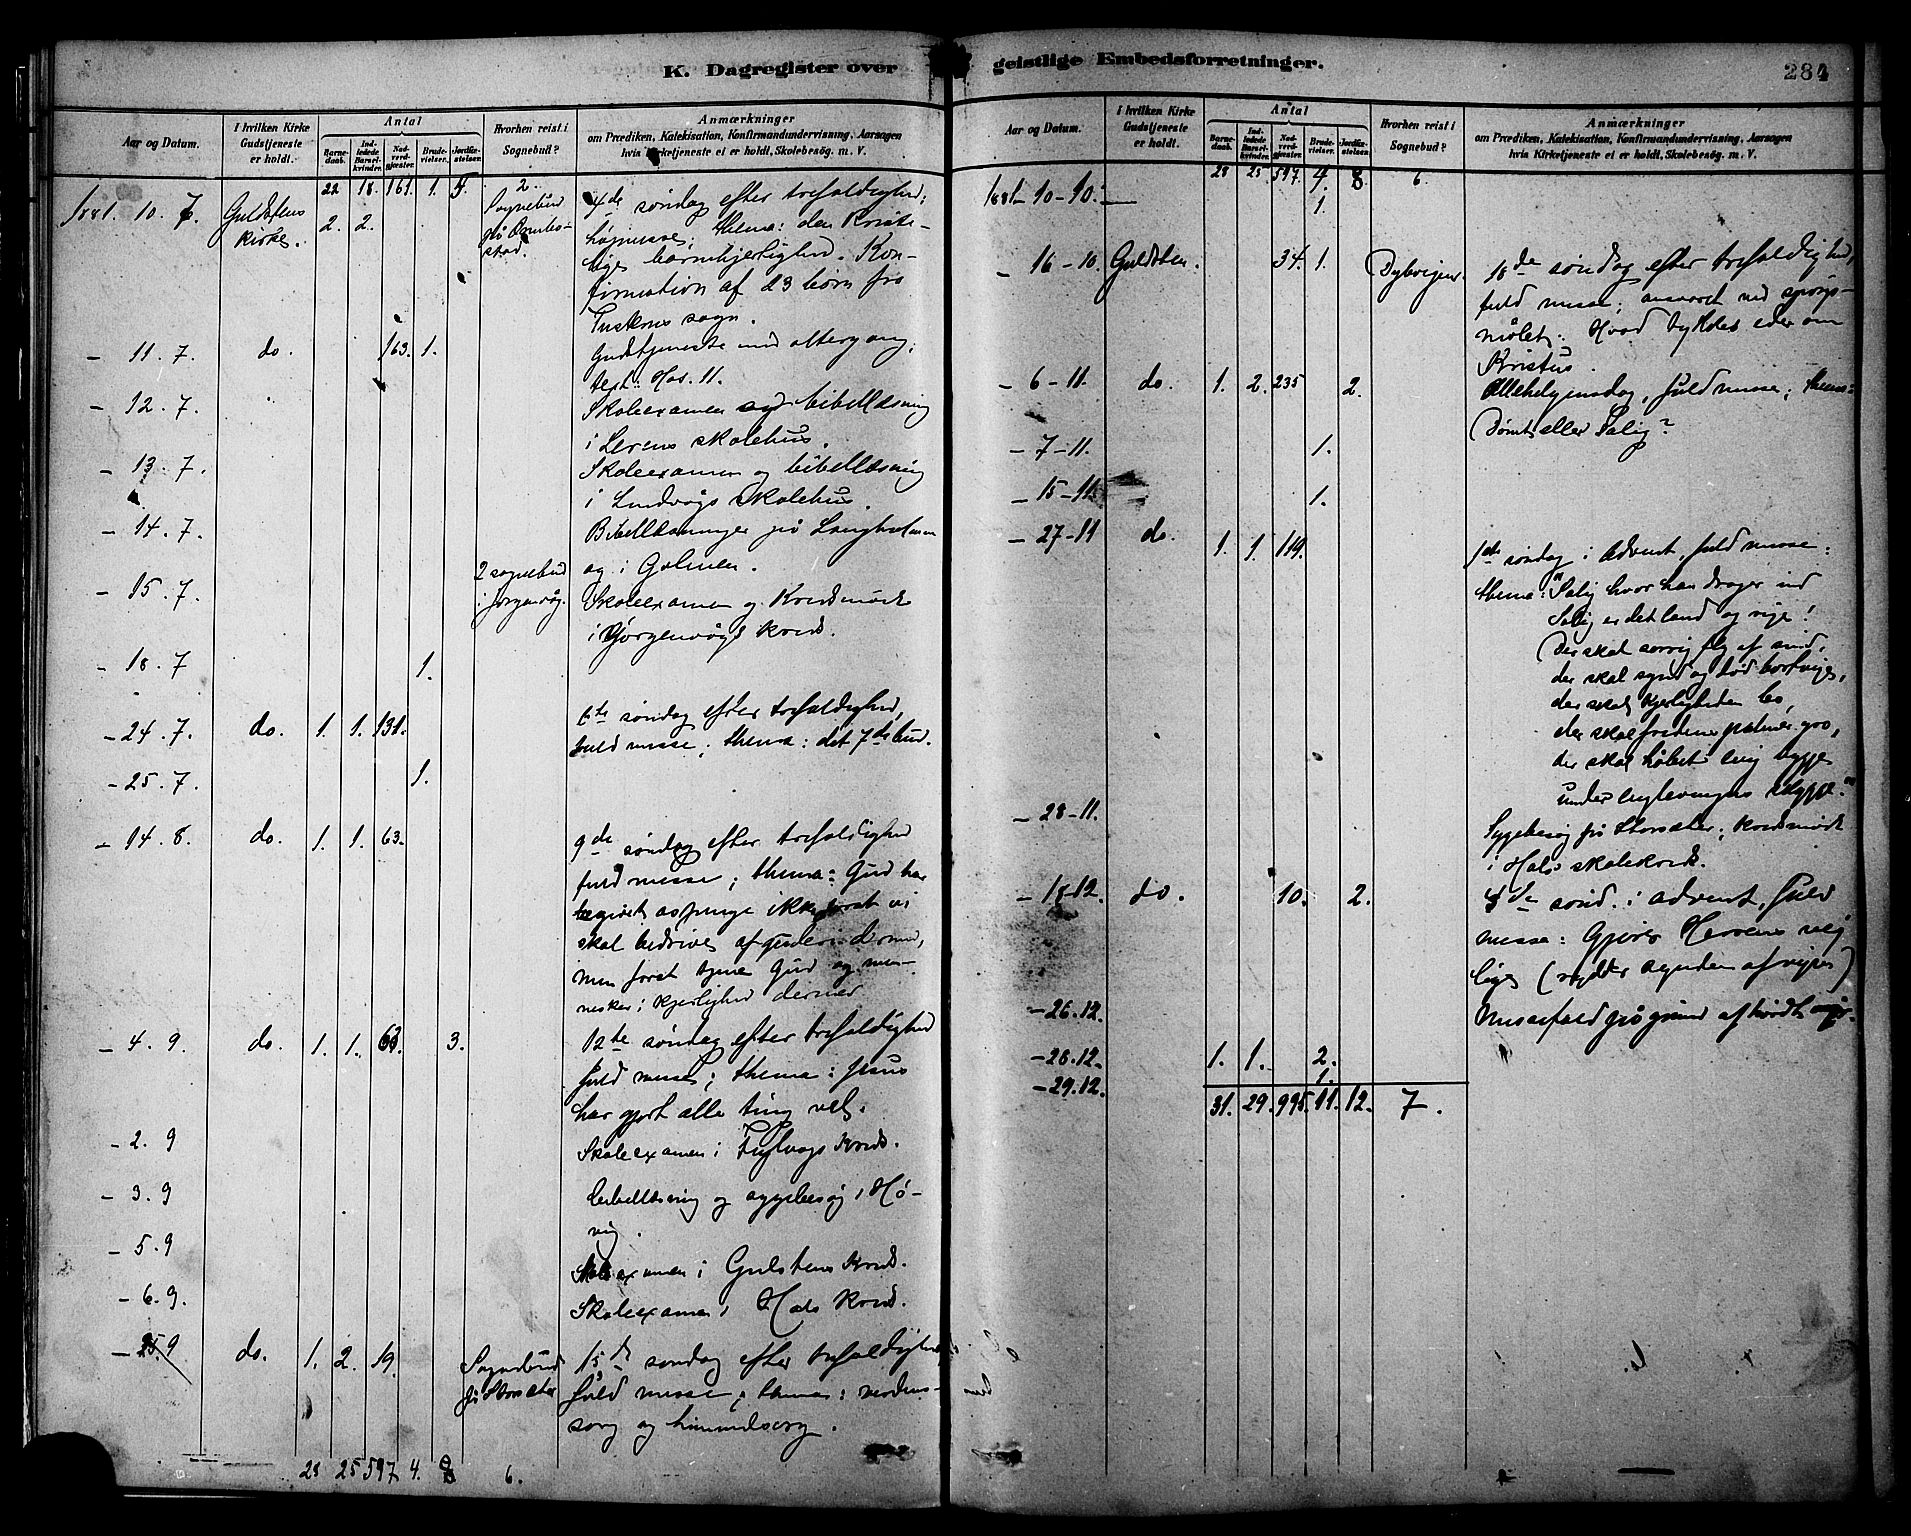 K. Dagregister over
Aar og Datum.
I hvilken Kirke Gudstjeneste er holdt.
Antal
Barnedaab.
Indledede Barselkvinder.
Nadverdgjæster.
Brudevielser.
Jordfæstelser.
Hvorhen reist i Sognebud?
Anmærkninger
om Prædiken, Katekisation, Konfirmandundervisning, Aarsagen
hvis Kirketjeneste ei er holdt, Skolebesøg. m. V.
22 18. 161. 1. 5. 2.
1881. 10. 7. Guldstens 2. 2. Sognebud 4de søndag efter trefoldighed;
kirke. på højmesse; thema: den kriste-
stad. lige barmhjertighed. Kon-
firmation af 23 børn fra
Tustrens sogn.
- 11. 7. do. 163. 1. Gudstjeneste med altergang;
text: Hos. 11.
- 12. 7. Skoleexamen og bibellæsning
i Lerens skolehus.
- 13. 7. Skoleexamen og bibellæsning
i Lindvågs skolehus.
- 14. 7. Bibellæsninger på Langholmen
2 sognebud og i Golmen.
- 15. 7. i Jørgenvåg. Skoleexamen og Kredsmøde
i Jørgenvågs kreds.
- 18. 7 1.
- 24. 7. do. 1. 1. 131. 6te søndag efter trefoldighed,
fuld messe; thema: det 7de bud.
- 25. 7. 1.
- 14. 8. do. 1. 1. 63. 9de søndag efter trefoldighed
fuld messe; thema: Gud har
begivet os penge ikke forat vi
skal bedrives afguderi dermed,
men forat tjene Gud og men-
nesker i kjerlighed dermed
- 4. 9. do. 1. 1. 63. 3. 12te søndag efter trefoldighed
fuld messe; thema: Jesus
har gjort alle ting vel.
- 2. 9 Skoleexamen i Fuglvågs Kreds.
- 3. 9 bibellæsning og sygebesøg i Hø-
vig.
- 5. 9 Skoleexamen i Gulstens Kreds.
- 6. 9. Skoleexamen i Hals kreds.
- 25. 9 do. 1. 2. 19. Sognebud 15de søndag efter trefoldighed
på Storsæter fuld messe; thema: verdens-
sorg og himmelsorg.
28 25 597 4. 8 6.
geistlige Embedsforretninger.
284
Aar og Datum.
I hvilken Kirke Gudstjeneste er holdt.
Antal
Barnedaab.
Indledede Barselkvinder.
Nadverdgjæster.
Brudevielser.
Jordfæstelser.
Hvorhen reist i Sognebud?
Anmærkninger
om Prædiken, Katekisation, Konfirmandundervisning, Aarsagen
hvis Kirketjeneste ei er holdt, Skolebesøg. m. V.
28 25 597. 4. 8. 6.
1881 - 10 - 10. 1.
- 16 - 10. Guldsten. 34. 1. Dybvigen. 18de søndag efter trefoldighed,
fuld messe; ansvaret ved spørgs-
målet: Hvad tykkes eder om
Kristus.
- 6 - 11. do. 1. 2. 235 2. Allehelgensdag, fuld messe; thema:
Dømt eller Salig?
- 7 - 11. 1.
- 15 - 11. 1.
- 27 - 11 do. 1. 1. 119. 1ste søndag i Advent, fuld messe:
thema: "Salig hvor han drager ind
Salig er det land og rige!
Der skal sorrig fly af sind,
der skal synd og død bortvige,
der skal kjerligheden bo,
der skal fredens palmer gro,
der skal håbet rolig bygge
under englevingers skygge."
- 28 - 11. Sygebesøg på Storsæter; kredsmøde
i Hals skolekreds.
- 18 - 12. do. 10. 2. 4de sønd. i advent, fuld
messe: Gjører Herrens vej
lige (rydder synden af vejen)
- 26. 12. Messefald på grund af hårdt vejr.
- 28. 12. 1. 1. 2.
- 29. 12. 1.
31. 29. 995. 11. 12. 7.